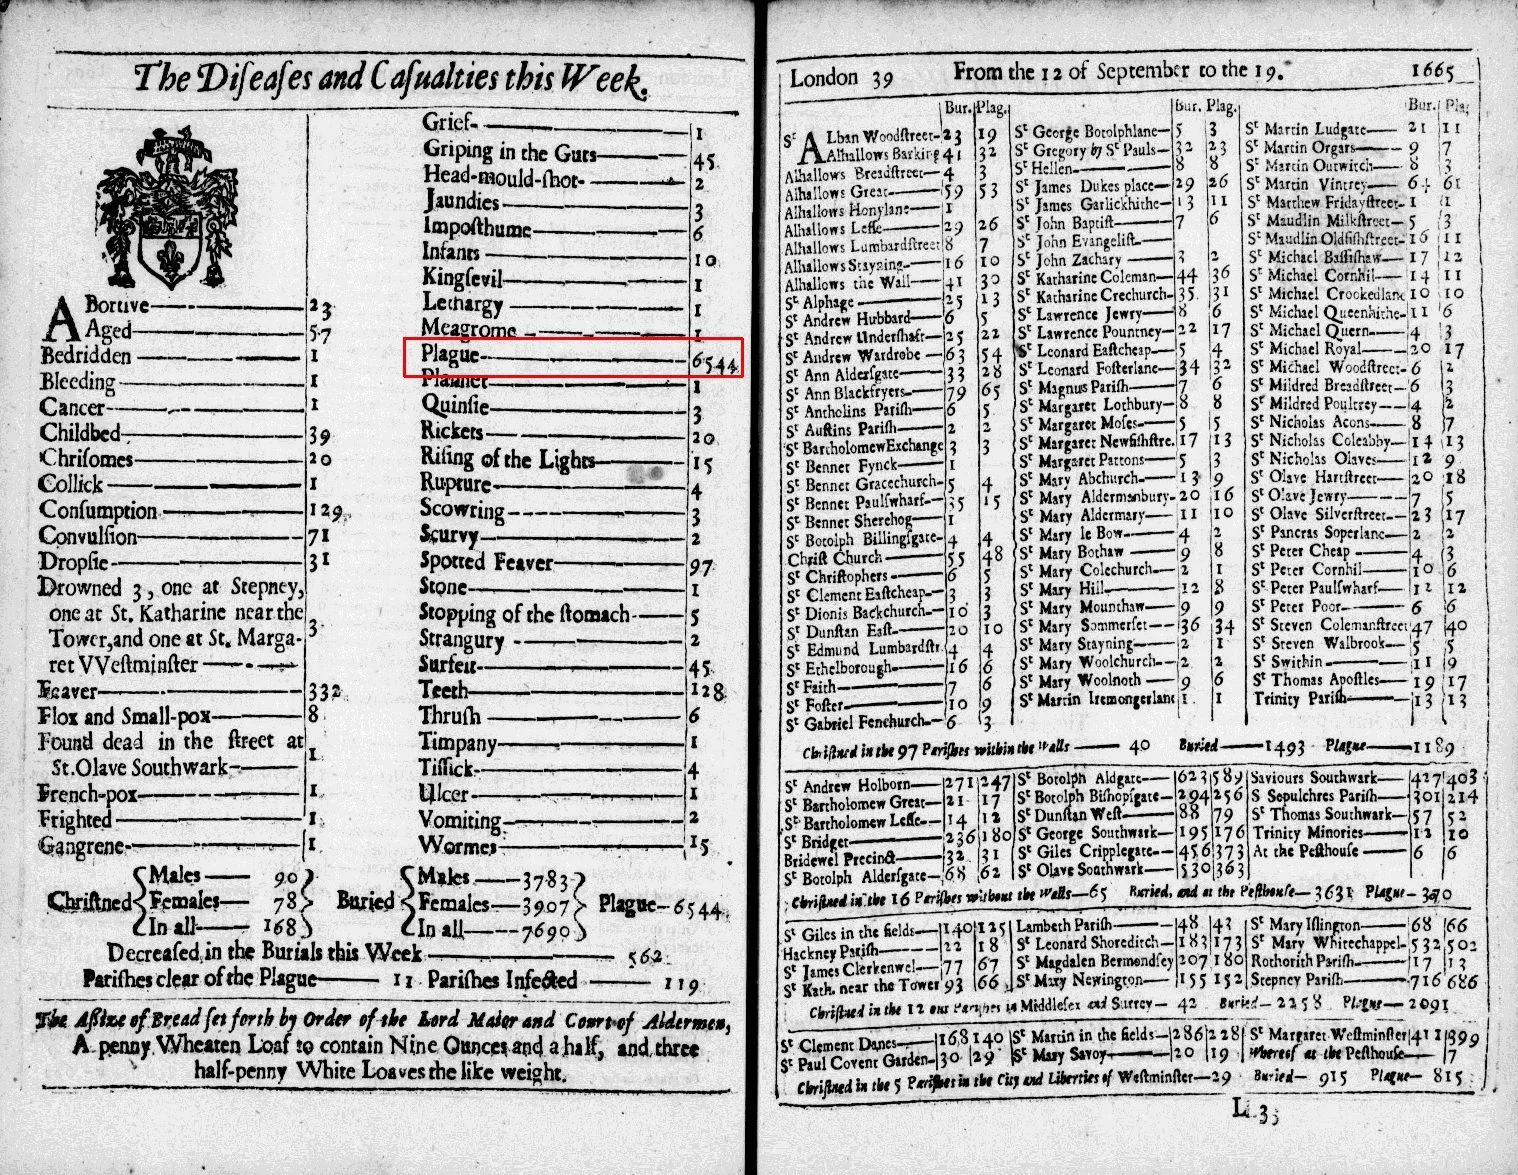 The Diſeaſes and Caſualties this Week.
ABortive — 23
Aged — 57
Bedridden — 1
Bleeding — 1
Cancer — 1
Childbed — 39
Chriſomes — 20
Collick — 1
Conſumption — 129
Convulſion — 71
Dropſie — 31
Drowned 3, one at Stepney,
one at St. Katharine near the
Tower, and one at St. Marga-
ret VVeſtminſter — 3
Feaver — 332
Flox and Small-pox — 8
Found dead in the ſtreet at
St. Olave Southwark — 1
French-pox — 1
Frighted — 1
Gangrene — 1
Grief — 1
Griping in the Guts — 45
Head-mould-ſhot — 2
Jaundies — 3
Impoſthume — 6
Infants — 10
Kingſevil — 1
Lethargy — 1
Meagrome — 1
Plague — 6544
Plannet — 1
Quinſie — 3
Rickets — 20
Riſing of the Lights — 15
Rupture — 4
Scowring — 3
Scurvy — 2
Spotted Feaver — 97
Stone — 1
Stopping of the ſtomach — 5
Strangury — 2
Surfeit — 45
Teeth — 128
Thruſh — 6
Timpany — 1
Tiſſick — 4
Ulcer — 1
Vomiting — 2
Wormes — 15
Chriſtned { Males — 90 Females — 78 In all — 168 }
Buried { Males — 3783 Females — 3907 In all — 7690 } Plague — 6544
Decreaſed in the Burials this Week — 562
Pariſhes clear of the Plague — 11 Pariſhes Infected — 119
The Aſſize of Bread ſet forth by Order of the Lord Maior and Court of Aldermen,
A penny Wheaten Loaf to contain Nine Ounces and a half, and three
half-penny White Loaves the like weight.
London 39 From the 12 of September to the 19. 1665
Bur. Plag.
St ALban Woodſtreet — 23 19
Alhallows Barking 41 32
Alhallows Breadſtreet — 4 3
Alhallows Great — 59 53
Alhallows Honylane — 1
Alhallows Leſſe — 29 26
Alhallows Lumbardſtreet 8 7
Alhallows Stayning — 16 10
Alhallows the Wall — 41 30
St Alphage — 25 13
St Andrew Hubbard — 6 5
St Andrew Underſhaft — 25 22
St Andrew Wardrobe — 63 54
St Ann Alderſgate — 33 28
St Ann Blackfryers — 79 65
St Antholins Pariſh — 6 5
St Auſtins Pariſh — 2 2
St Bartholomew Exchange 3 3
St Bennet Fynck — 1
St Bennet Gracechurch — 5 4
St Bennet Paulſwharf — 35 15
St Bennet Sherehog — 1
St Botolph Billingſgate — 4 4
Chriſt Church — 55 48
St Chriſtophers — 6 5
St Clement Eaſtcheap — 3 3
St Dionis Backchurch — 10 3
St Dunſtan Eaſt — 20 10
St Edmund Lumbardſtr. 4 4
St Ethelborough — 16 6
St Faith — 7 6
St Foſter — 10 9
St Gabriel Fenchurch — 6 3
Bur. Plag.
St George Botolphlane — 5 3
St Gregory by St Pauls — 32 23
St Hellen — 8 8
St James Dukes place — 29 26
St James Garlickhithe — 13 11
St John Baptiſt — 7 6
St John Evangeliſt —
St John Zachary — 3 2
St Katharine Coleman — 44 36
St Katharine Crechurch — 35 31
St Lawrence Jewry — 8 6
St Lawrence Pountney — 22 17
St Leonard Eaſtcheap — 5 4
St Leonard Foſterlane — 34 32
St Magnus Pariſh — 7 6
St Margaret Lothbury — 8 8
St Margaret Moſes — 5 5
St Margaret Newfiſhſtre. 17 13
St Margaret Pattons — 5 3
St Mary Abchurch — 13 9
St Mary Aldermanbury — 20 16
St Mary Aldermary — 11 10
St Mary le Bow — 4 2
St Mary Bothaw — 9 8
St Mary Colechurch — 2 1
St Mary Hill — 12 8
St Mary Mounthaw — 9 9
St Mary Sommerſet — 36 34
St Mary Stayning — 2 1
St Mary Woolchurch — 2 2
St Mary Woolnoth — 9 6
St Martin Iremongerlane 1 1
Bur. Pla.
St Martin Ludgate — 21 11
St Martin Orgars — 9 7
St Martin Outwitch — 8 3
St Martin Vintrey — 64 61
St Matthew Fridayſtreet — 1 1
St Maudlin Milkſtreet — 5 3
St Maudlin Oldfiſhſtreet — 16 11
St Michael Baſſiſhaw — 17 12
St Michael Cornhil — 14 11
St Michael Crookedlane 10 10
St Michael Queenhithe — 11 6
St Michael Quern — 4 3
St Michael Royal — 20 17
St Michael Woodſtreet — 6 2
St Mildred Breadſtreet — 6 3
St Mildred Poultrey — 4 2
St Nicholas Acons — 8 7
St Nicholas Coleabby — 14 13
St Nicholas Olaves — 12 9
St Olave Hartſtreet — 20 18
St Olave Jewry — 7 5
St Olave Silverſtreet — 23 17
St Pancras Soperlane — 2 2
St Peter Cheap — 4 3
St Peter Cornhil — 10 6
St Peter Paulſwharf — 12 12
St Peter Poor — 6 6
St Steven Colemanſtreet 47 40
St Steven Walbrook — 5 5
St Swithin — 11 9
St Thomas Apoſtles — 19 17
Trinity Pariſh — 13 13
Chriſtned in the 97 Pariſhes within the Walls — 40 Buried — 1493 Plague — 1189
St Andrew Holborn — 271 247
St Bartholomew Great — 21 17
St Bartholomew Leſſe — 14 12
St Bridget — 236 180
Bridewel Precinct — 32 31
St Botolph Alderſgate — 68 62
St Botolph Aldgate — 623 589
St Botolph Biſhopſgate — 294 256
St Dunſtan Weſt — 88 79
St George Southwark — 195 176
St Giles Cripplegate — 456 373
St Olave Southwark — 530 363
Saviours Southwark — 427 403
S Sepulchres Pariſh — 301 214
St Thomas Southwark — 57 52
Trinity Minories — 12 10
At the Peſthouſe — 6 6
Chriſtned in the 16 Pariſhes without the Walls — 65 Buried, and at the Peſthouſe — 3631 Plague —
St Giles in the fields — 140 125
Hackney Pariſh — 22 18
St James Clerkenwel — 77 67
St Kath. near the Tower 93 66
Lambeth Pariſh — 48 43
St Leonard Shoreditch — 183 173
St Magdalen Bermondſey 207 180
St Mary Newington — 155 152
St Mary Iſlington — 68 66
St Mary Whitechappel — 532 502
Rothorith Pariſh — 17 13
Stepney Pariſh — 716 686
Chriſtned in the 12 out Pariſhes in Middleſex and Surrey — 42 Buried — 2258 Plague — 2091
St Clement Danes — 168 140
St Paul Covent Garden — 30 29
St Martin in the fields — 286 228
St Mary Savoy — 20 19
St Margaret Weſtminſter 411 399
Whereof at the Peſthouſe — 7
Chriſtned in the 5 Pariſhes in the City and Liberties of Weſtminſter — 29 Buried — 915 Plague — 815